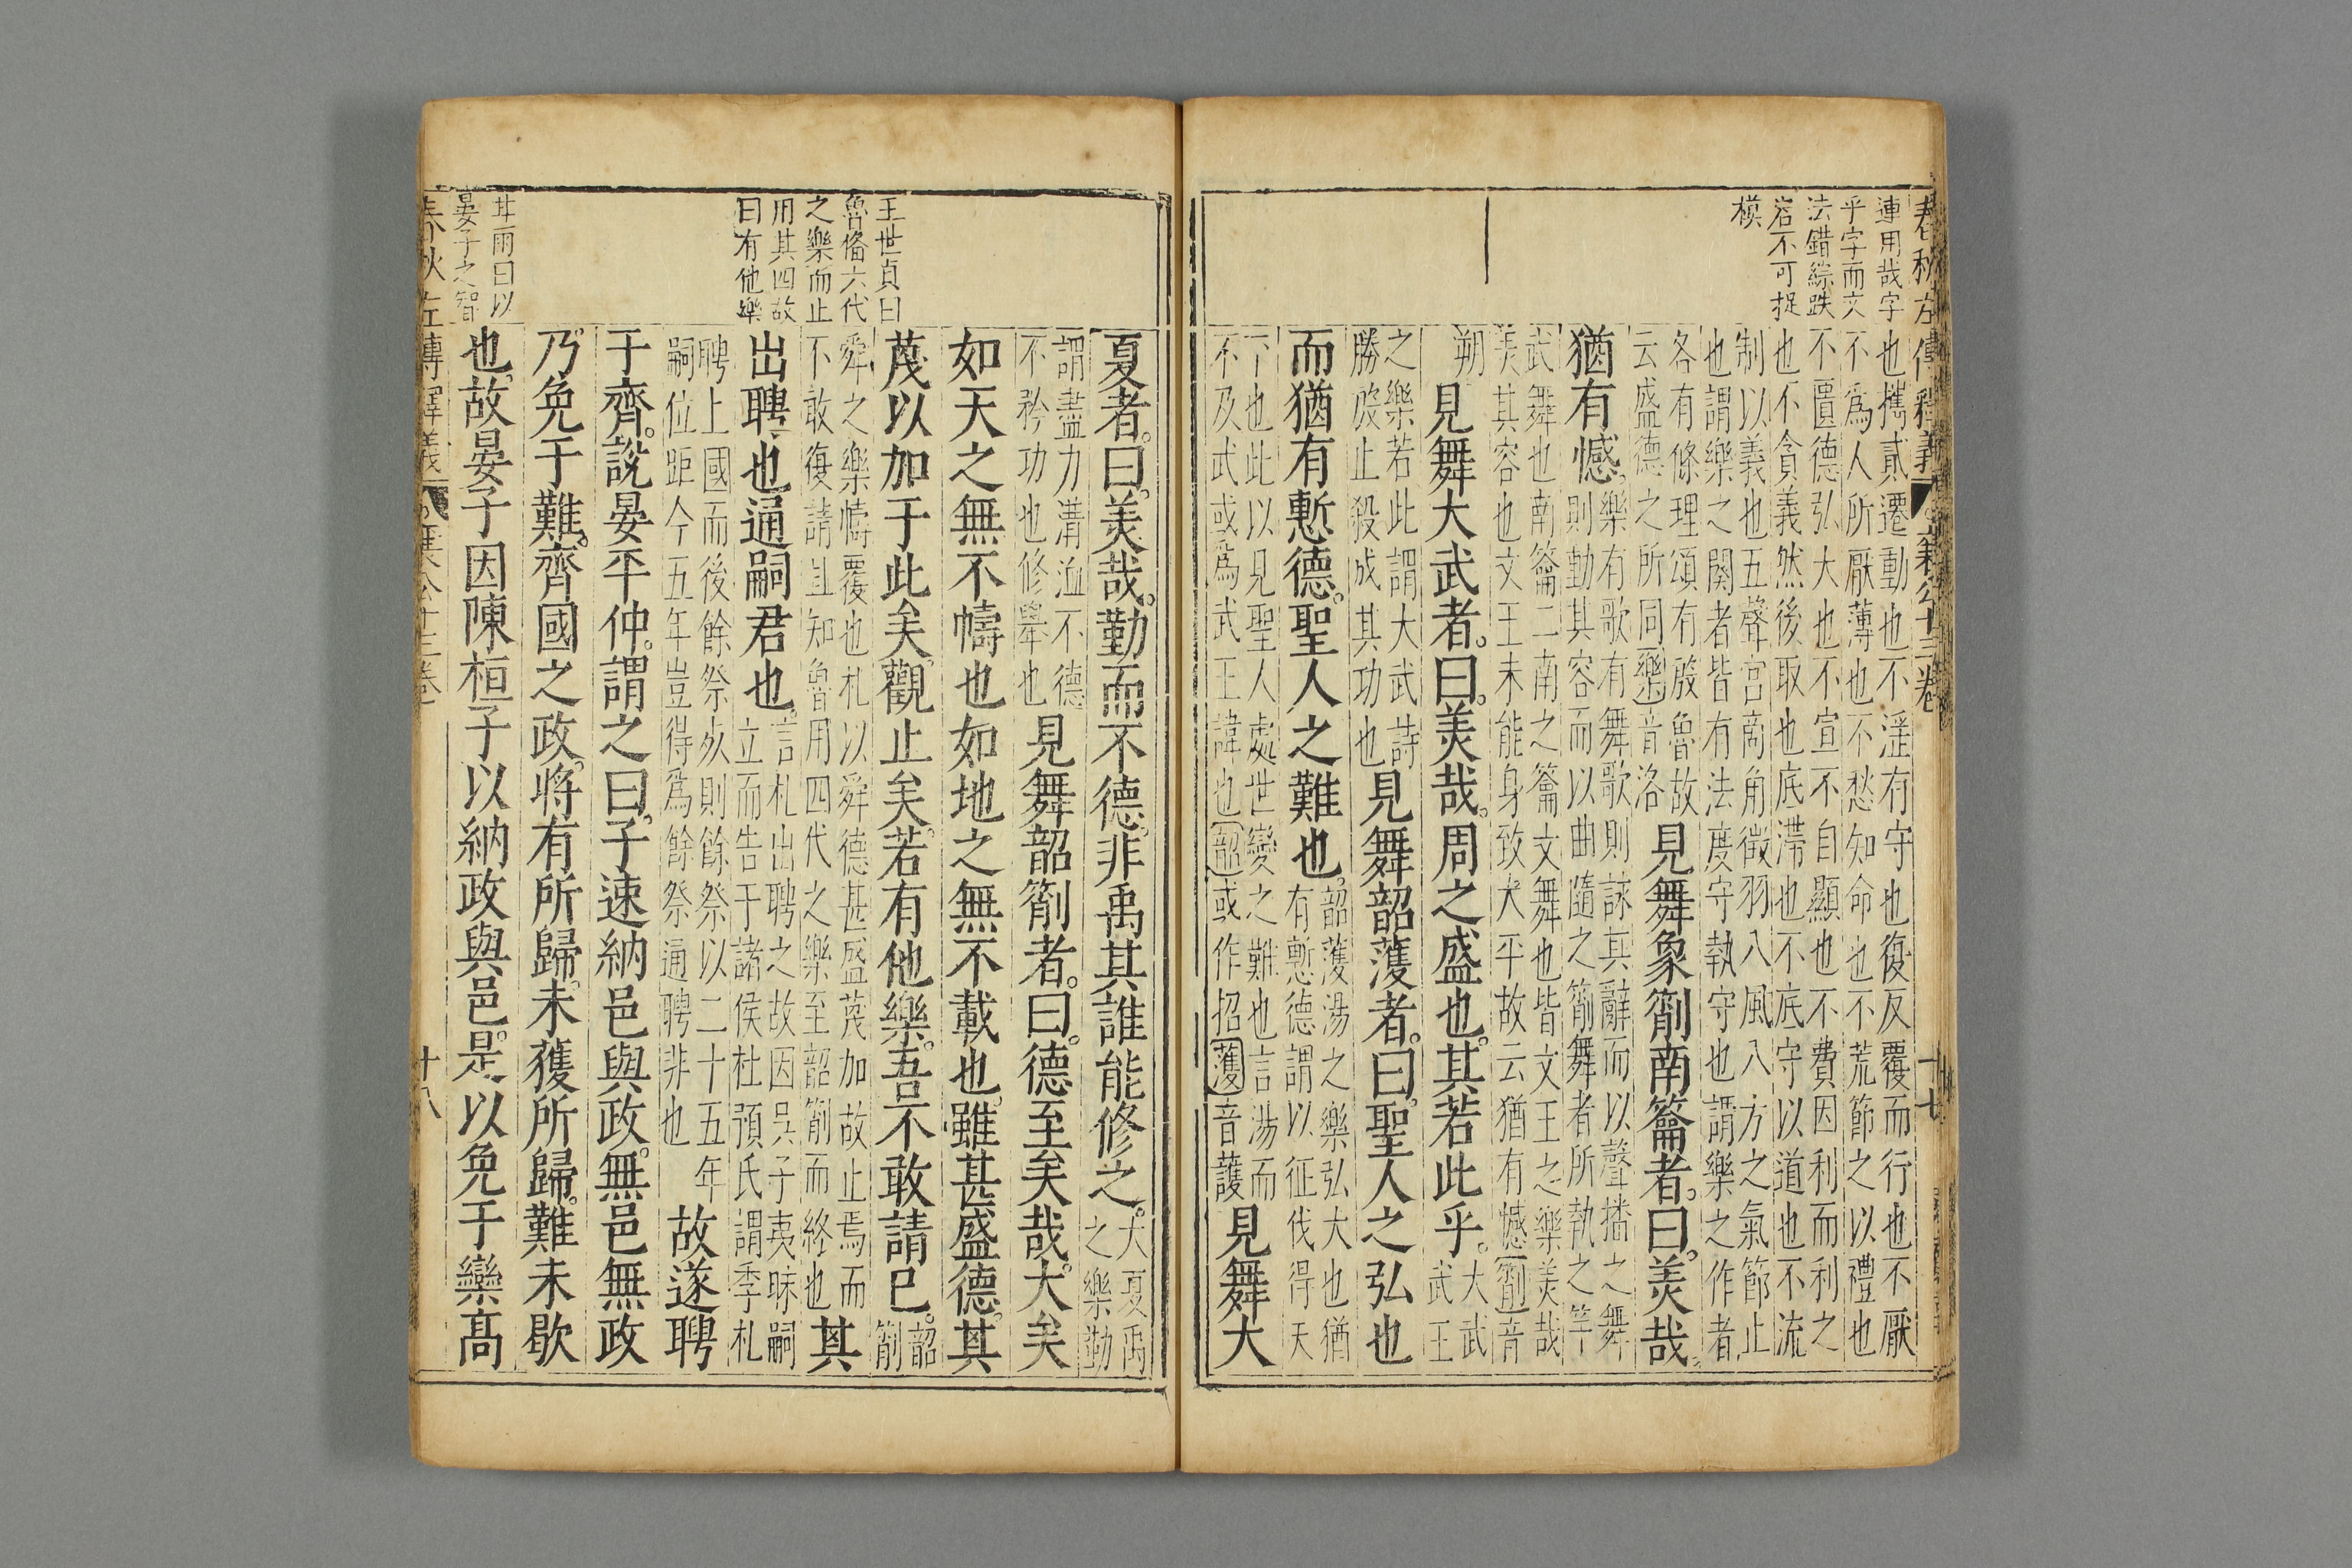 春秋左傳釋義
襄公十三卷
十七
連用哉字
乎字而文
法錯綜跌
宕不可捉
摸
也攜貳遷動也不淫有守也復反覆而行也不厭
不爲人所厭薄也不愁知命也不荒節之以禮也
不匱德弘大也不宣不自顯也不費因利而利之
也不貪義然後取也底滯也不底守以道也不流
制以義也五聲宮商角徵羽八風八方之氣節止
也謂樂之閡者皆有法度守執守也謂樂之作者
各有條理頌有殷魯故
云盛德之所同樂音洛
見舞象箾南籥者。曰。美哉。
猶有憾。
樂有歌有舞歌則詠其辭而以聲播之舞
則動其容而以曲隨之箾舞者所執之竿
武舞也南籥二南之籥文舞也皆文王之樂美哉
美其容也文王未能身致太平故云猶有憾箾音
朔
見舞大武者。曰。美哉。周之盛也。其若此乎。
大武
武王
之樂若此謂大武詩
勝殷止殺成其功也
見舞韶濩者。曰。聖人之弘也
而猶有慙德。聖人之難也。
韶濩湯之樂弘大也猶
有慙德謂以征伐得天
下也此以見聖人處世變之難也言湯而
不及武或爲武王諱也韶或作招濩音護
見舞大
夏者。曰。美哉。勤而不德。非禹其誰能修之。
大夏禹
之樂勤
謂盡力溝洫不德
不矜功也修舉也
見舞韶箾者。曰。德至矣哉。大矣
如天之無不幬也。如地之無不載也。雖甚盛德。其
蔑以加于此矣。觀止矣。若有他樂。吾不敢請已。
韶
箾
王世貞曰
魯備六代
之樂而止
用其四故
曰有他樂
舜之樂幬覆也札以舜德甚盛蔑加故止焉而
不敢復請豈知魯用四代之樂至韶箾而終也
其
出聘也通嗣君也。
言札出聘之故因吳子夷昧嗣
立而告于諸侯杜預氏謂季札
聘上國而後餘祭死則餘祭以二十五年
嗣位距今五年豈得爲餘祭通聘非也
故遂聘
于齊。說晏平仲。謂之曰。子速納邑與政。無邑無政
乃免于難。齊國之政。將有所歸。未獲所歸。難未歇
也。故晏子因陳桓子以納政與邑。是以免于欒高
曰以
晏子之智
春秋左傳釋義
襄公十三卷
十八